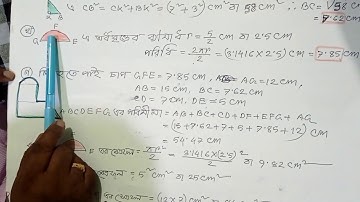 CB² = CK²+BK² = (7²+3²) cm² বা 98 cm² ∴ BC = √98 cm
A B
(খ) G F E এ অর্ধবৃত্তের ব্যাসার্ধ = 5/2 cm বা 2.5 cm
পরিধি = 2πr/2 = (3.1416×2.5) cm = 7.85 cm
(গ) পাই, চাপ GFE = 7.85 cm, AG = 12 cm,
AB = 15 cm, BC = 7.62 cm
CD = 7 cm, DE = 5 cm
ABCDEFG এর পরিসীমা = AB + BC + CD + DE + EFG + AG
= (15+7.62+7+5+7.85+12) cm
= 54.47 cm
এর ক্ষেত্রফল = πr²/2 = 3.1416×(2.5)²/2 cm² বা 9.82 cm²
= 5² cm² বা 25 cm²